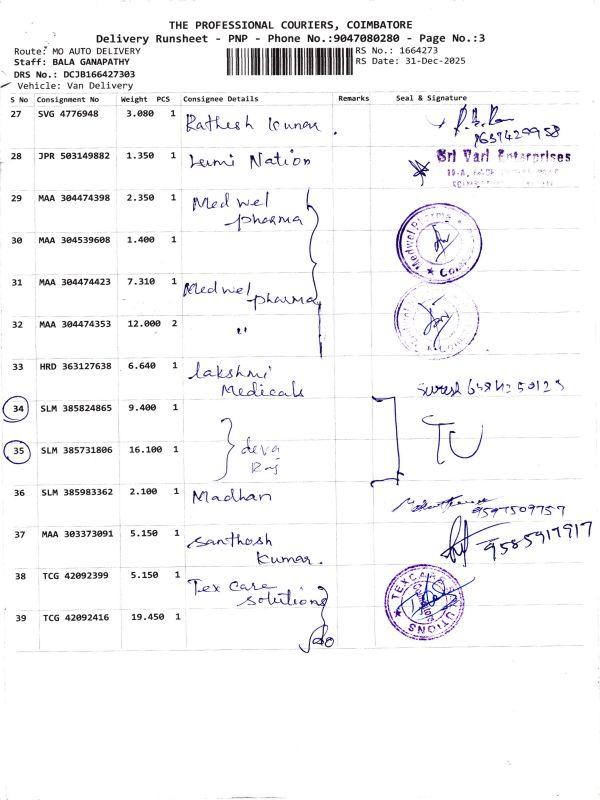 THE PROFESSIONAL COURIERS, COIMBATORE
Delivery Runsheet - PNP - Phone No.:9047080280 - Page No.:3
Route: MO AUTO DELIVERY
RS No.: 1664273
Staff: BALA GANAPATHY
RS Date: 31-Dec-2025
DRS No.: DCJB166427303
Vehicle: Van Delivery
S No Consignment No Weight PCS Consignee Details Remarks Seal & Signature
27 SVG 4776948 3.080 1 Rathesh Kumar.
28 JPR 503149882 1.350 1 Lumi Nation Sri Vari Enterprises
29 MAA 304474398 2.350 1 Medwel
pharma
Medwel pharma
30 MAA 304539608 1.400 1
31 MAA 304474423 7.310 1 Medwel
pharma
32 MAA 304474353 12.000 2 "
33 HRD 363127638 6.640 1 lakshmi
Medicals
Suresh
34 SLM 385824865 9.400 1
35 SLM 385731806 16.100 1 deva
Raj
TU
36 SLM 385983362 2.100 1 Madhan 9597509757
37 MAA 303373091 5.150 1 santhosh
kumar.
9585917917
38 TCG 42092399 5.150 1 Tex care
solutions
TEXCARE SOLUTIONS
39 TCG 42092416 19.450 1